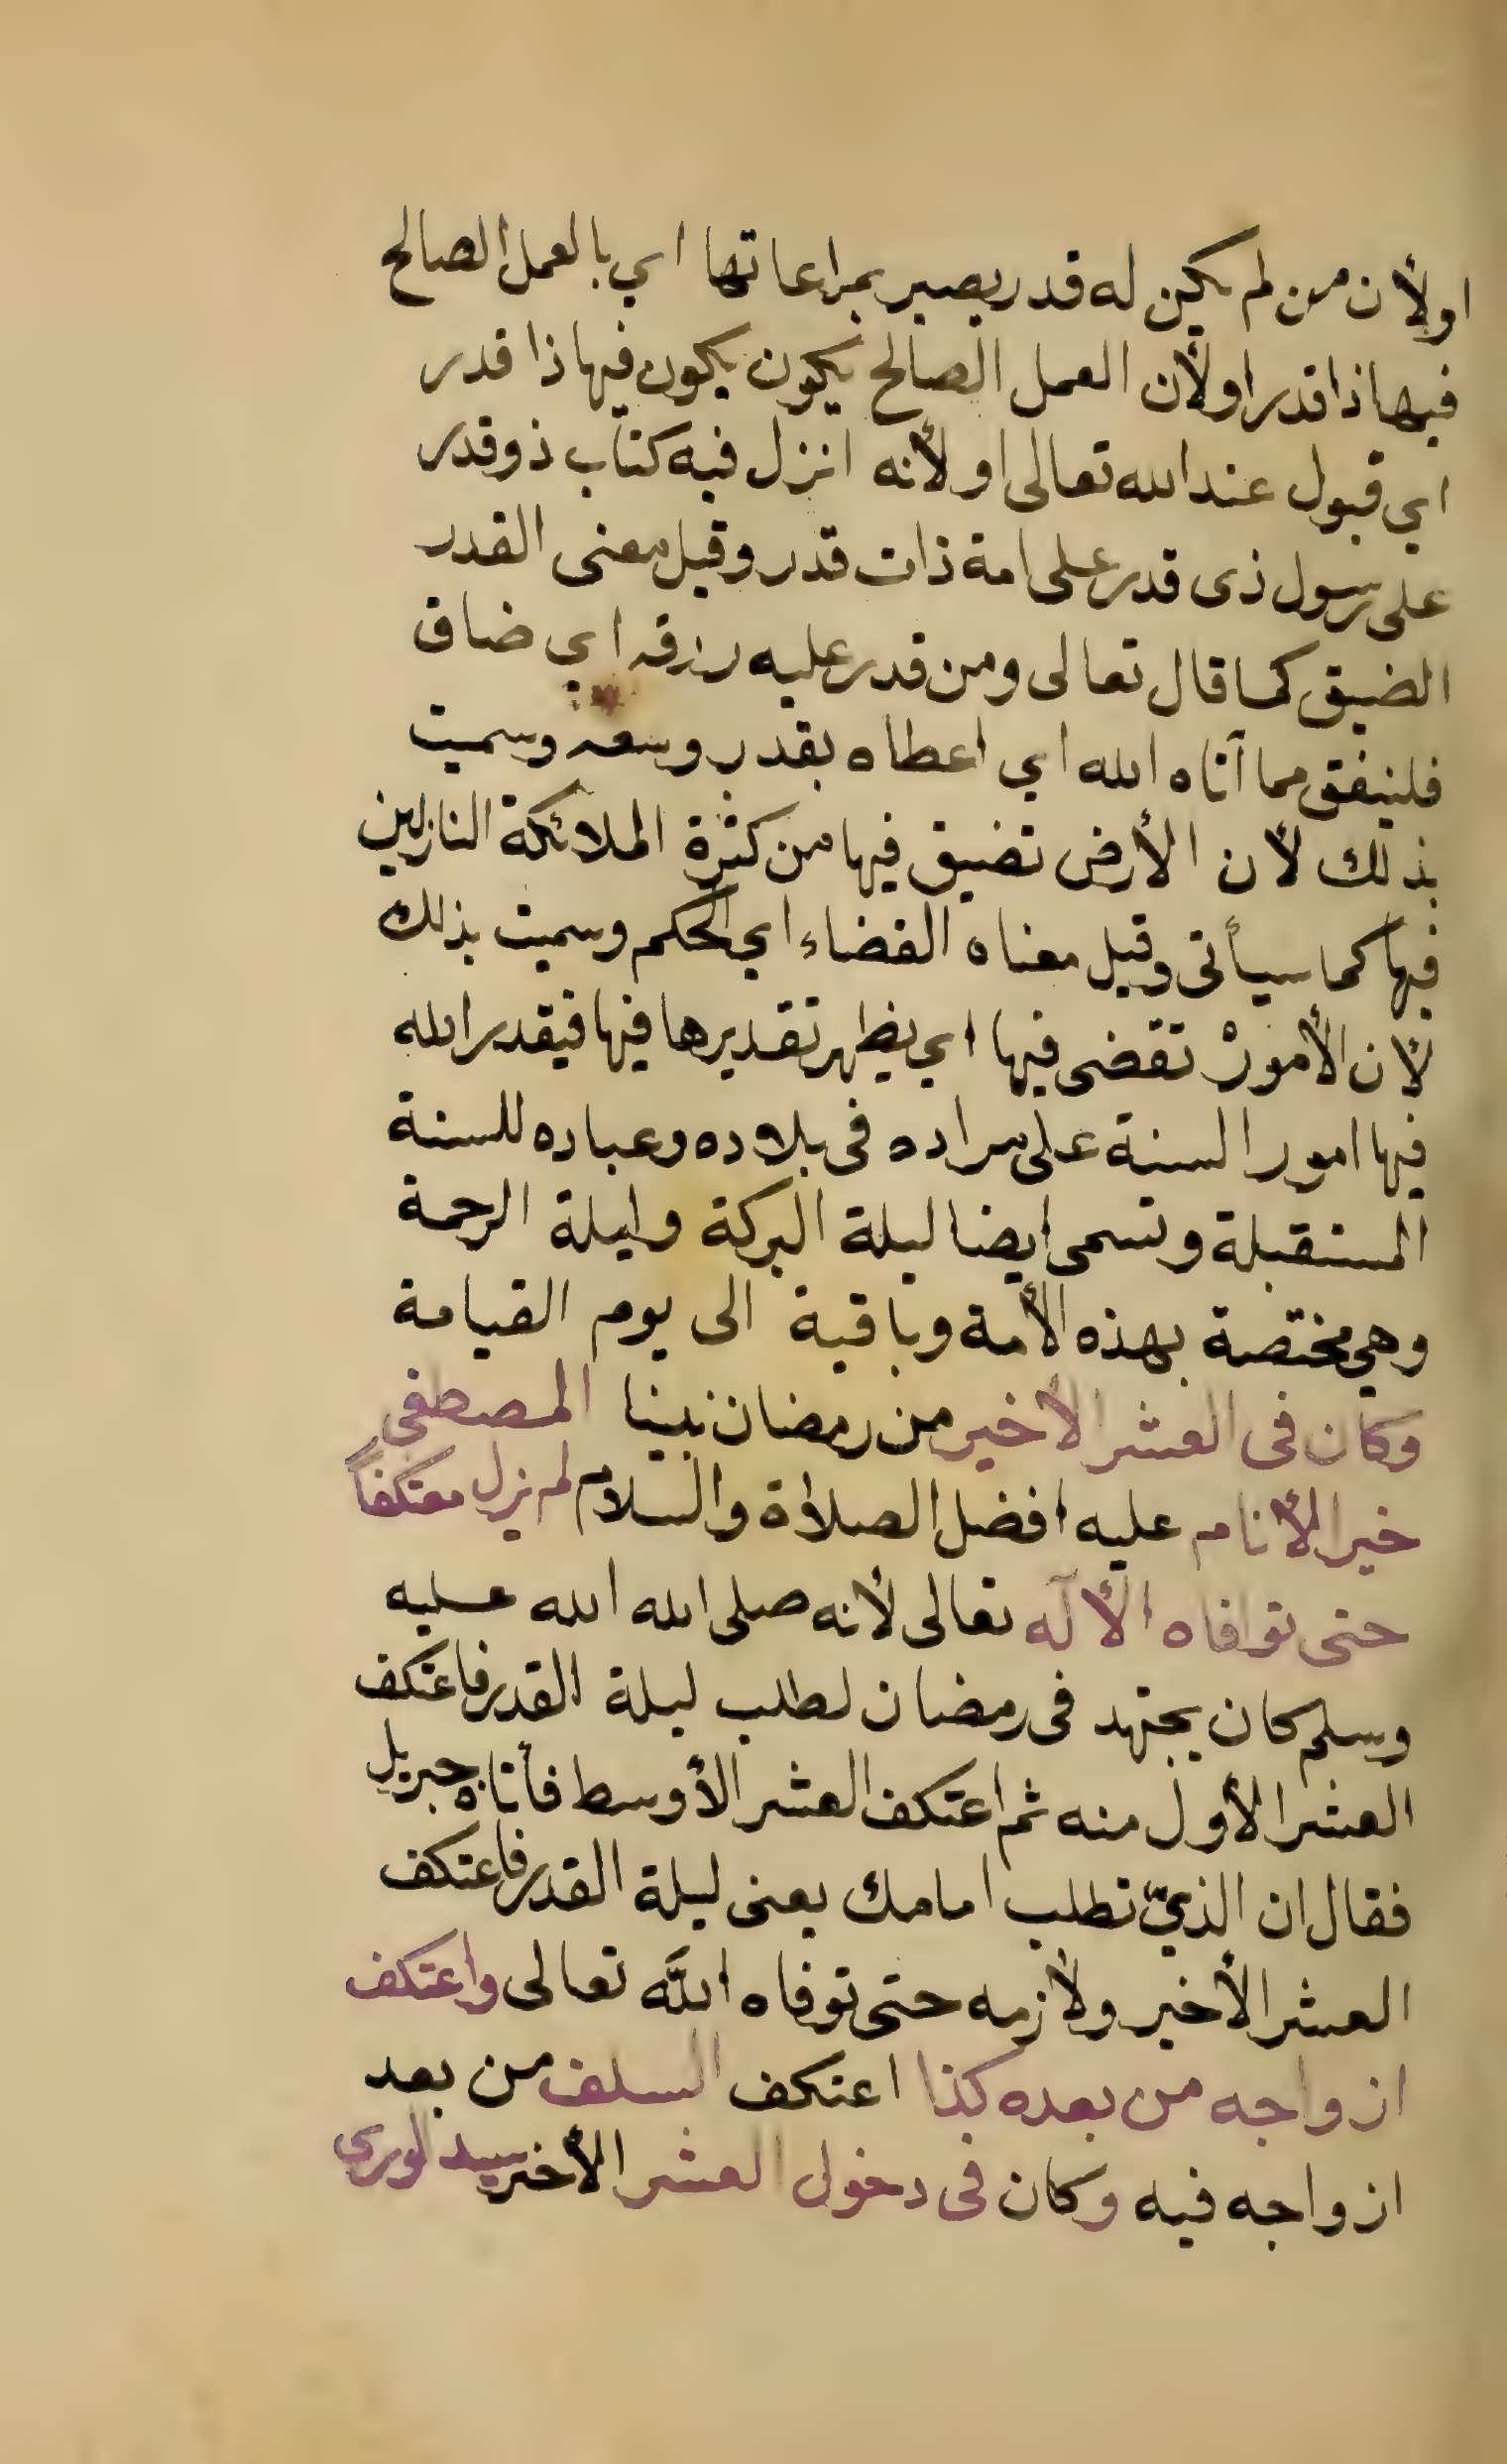 اولأن من لم يكن له قدر يصير بمراعاتها اي بالعمل الصالح
فيها ذا قدر اولأن العمل الصالح يكون يكون فيها ذا قدر
اي قبول عند الله تعالى اولأنه انزل فيه كتاب ذوقدر
على رسول ذى قدر على امة ذات قدر وقيل معنى القدر
الضيق كما قال تعالى ومن قدر عليه رزقه اي ضاق
فلينفق مما آتاه الله اي اعطاه بقدر وسعه وسميت
بذلك لأن الأرض تضيق فيها من كثرة الملائكة النازلين
فيها كما سيأتى وقيل معناه القضاء اي الحكم وسميت بذلك
لأن الأمور تقضى فيها اي يظهر تقديرها فيها فيقدر الله
فيها امور السنة على مراده فى بلاده وعباده للسنة
المستقبلة وتسمى ايضا ليلة البركة وليلة الرحمة
وهي مختصة بهذه الأمة وباقية الى يوم القيامة
وكان فى العشر الأخير من رمضان نبينا المصطفى
خير الأنام عليه افضل الصلاة والسلام لم يزل معتكفاً
حتى توافاه الألآه تعالى لأنه صلى الله الله عليه
وسلم كان يجتهد فى رمضان لطلب ليلة القدر فاعتكف
العشر الأول منه ثم اعتكف العشر الأوسط فأتاه جبريل
فقال ان الذي تطلب امامك يعنى ليلة القدر فاعتكف
العشر الأخير ولأزمه حتى توفاه اللَّه تعالى واعتكف
ازواجه من بعده كذا اعتكف السلف من بعد
ازواجه فيه وكان فى دخول العشر الأخير سيد الورى